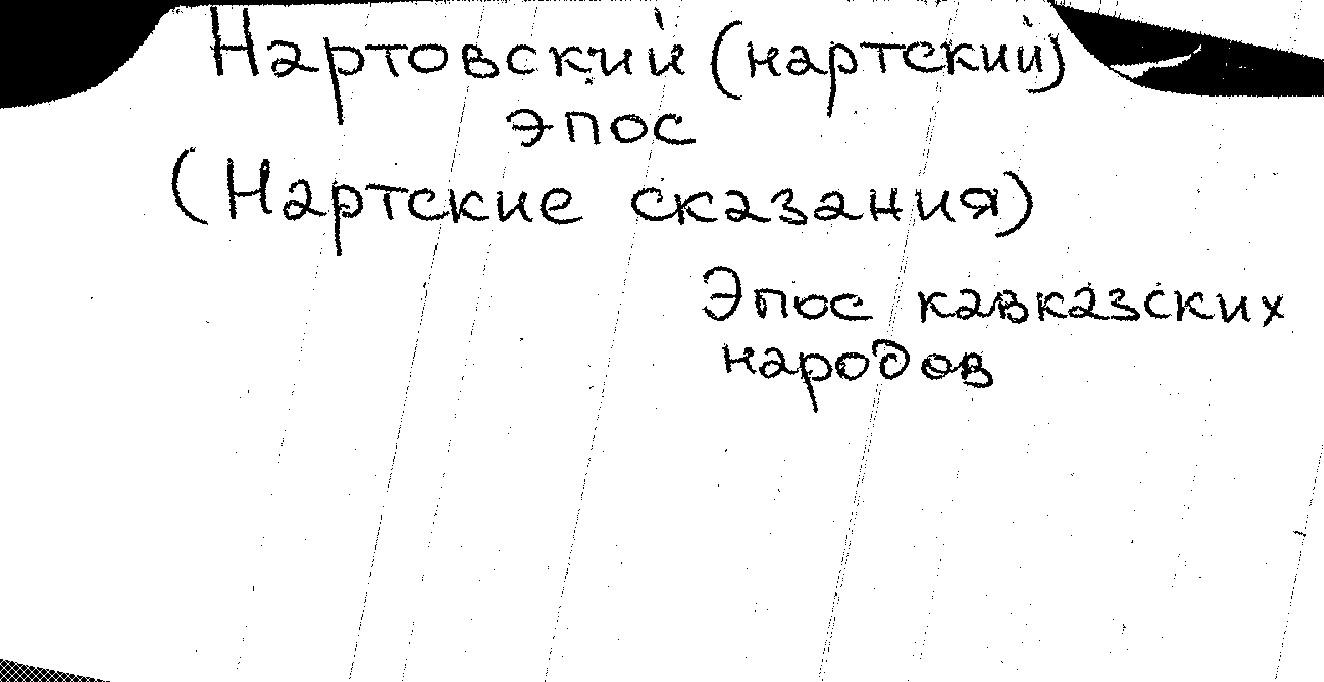 Нартовский (нартский)
эпос
(Нартские сказания)
Эпос кавказских
народов